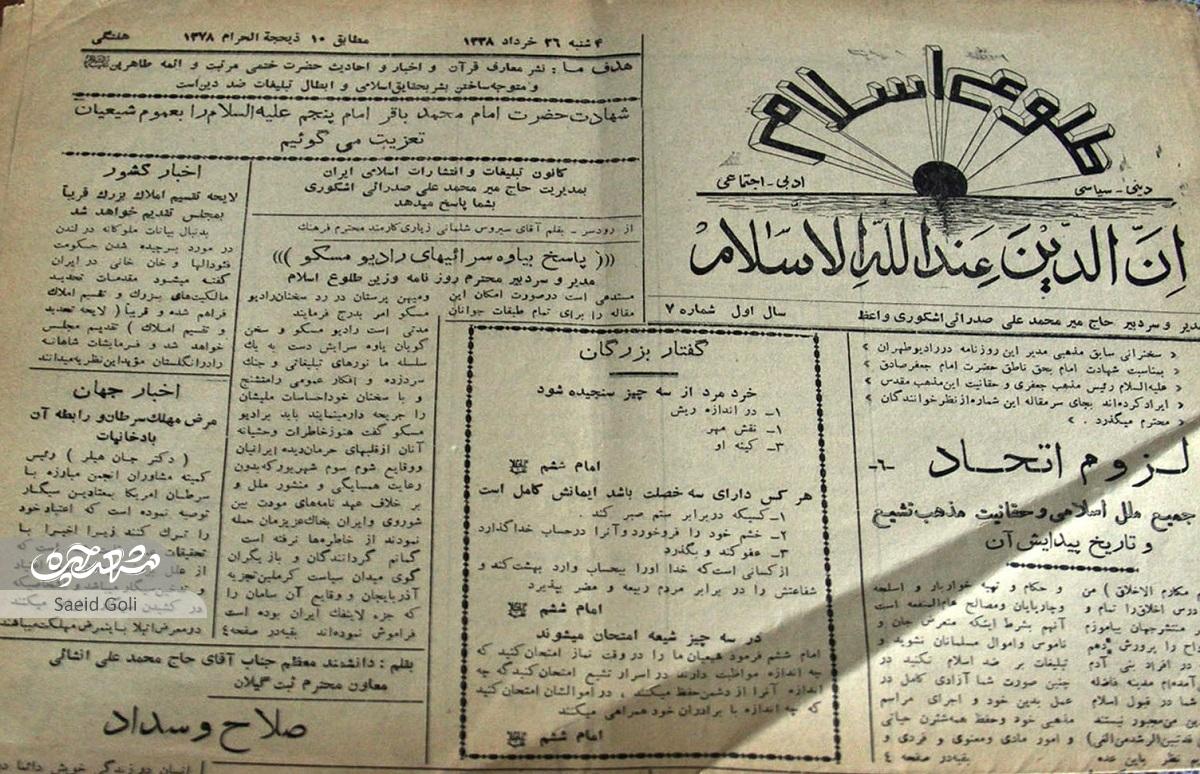 ۴ شنبه ۲۶ خرداد ۱۳۳۸ مطابق ۱۰ ذیحجة الحرام ۱۳۷۸ هفتگی
طلوع اسلام
دینی - سیاسی
ادبی - اجتماعی
ان الدین عندالله الاسلام
سال اول شماره ۷
مدیر و سردبیر حاج میر محمد علی صدرائی اشکوری واعظ
هدف ما: نشر معارف قرآن و اخبار و احادیث حضرت ختمی مرتبت و ائمه طاهرین
و متوجه ساختن بشر بحقایق اسلامی و ابطال تبلیغات ضد دین است
شهادت حضرت امام محمد باقر امام پنجم علیه السلام را بعموم شیعیان
تعزیت می گوئیم
« سخنرانی سابق مذهبی مدیر این روزنامه در رادیو طهران »
« بمناسبت شهادت امام بحق ناطق حضرت امام جعفر صادق »
« علیه السلام رئیس مذهب جعفری و حقانیت این مذهب مقدس »
« ایراد کرده اند بجای سر مقاله این شماره از نظر خوانندگان »
« محترم میگذرد . »
لزوم اتحاد -۶-
جمیع ملل اسلامی و حقانیت مذهب تشیع
و تاریخ پیدایش آن
مکارم الاخلاق ) من
درس اخلاق را تمام و
منتشر جهان بیاموزم
را پرورش دهم
در افراد بنی آدم
مدینه فاضله
شما در قبول اسلام
من مجبور نیستند
نظر باین عده
و حکام و تهیه خواربار و اسلحه
و چارپایان و مصالح عام المنفعه است
آنهم بشرط اینکه متعرض جان و
ناموس و اموال مسلمانان نشوید و
تبلیغات بر ضد اسلام نکنید در
چنین صورت شما آزادی کامل در
عمل بدین خود و اجرای مراسم
مذهبی خود و حفظ همه شئون حیاتی
و امور مادی و معنوی و فردی و
بقیه در صفحه ۴
کانون تبلیغات و انتشارات اسلامی ایران
بمدیریت حاج میر محمد علی صدرائی اشکوری
بشما پاسخ میدهد
از رودسر - بقلم آقای سیروس شلمانی زیاری کارمند محترم فرهنگ
((( پاسخ بیاوه سرائیهای رادیو مسکو )))
مدیر و سردبیر محترم روز نامه وزین طلوع اسلام
مستدعی است در صورت امکان این
مقاله را برای تمام طبقات جوانان
و میهن پرستان در رد سخنان رادیو
مسکو امر بدرج فرمایند
مدتی است رادیو مسکو و سخن
گویان یاوه سرایش دست به یک
سلسله ما نورهای تبلیغاتی و جنگ
سرد زده و افکار عمومی را متشنج
و با سخنان خود احساسات ملیشان
را جریحه دار مینمایند باید برادیو
مسکو گفت هنوز خاطرات وحشیانه
آنان از قلبهای حرمان دیده ایرانیان
و وقایع شوم سوم شهریور که بدون
رعایت همسایگی و منشور ملل و
بر خلاف عهد نامه های مودت بین
شوروی و ایران بخاک عزیزمان حمله
نمودند از خاطره ها نرفته است
گمانم گردانندگان و بازیگران
گوی میدان سیاست کرملین تجزیه
آذربایجان و وقایع آن سامان را
که جزء لاینفک ایران بوده است
فراموش نموده اند بقیه در صفحه ۴
گفتار بزرگان
خرد مرد از سه چیز سنجیده شود
۱- در اندازه ریش
۱- نقش مهر
۳- کینه او
امام ششم
هر کس دارای سه خصلت باشد ایمانش کامل است
۱- کسیکه در برابر ستم صبر کند .
۲- خشم خود را فروخورد و آنرا در حساب خدا گذارد
۳- عفو کند و بگذرد
از کسانی است که خدا او را بیحساب وارد بهشت کند و
شفاعتش را در برابر مردم ربیعه و مضر بپذیرد
امام ششم
در سه چیز شیعه امتحان میشوند
امام ششم فرمود شیعیان ما را در وقت نماز امتحان کنید که
چه اندازه مواظبت دارند در اسرار تشیع امتحان کنید که چه
اندازه آنرا از دشمن حفظ میکنند ، در اموالشان امتحان کنید
که چه اندازه با برادران خود همراهی میکنند
امام ششم
اخبار کشور
لایحه تقسیم املاک بزرگ قریباً
بمجلس تقدیم خواهد شد
بدنبال بیانات ملوکانه در لندن
در مورد برچیده شدن حکومت
فئودالها و خان خانی در ایران
گفته میشود مقدمات تحدید
مالکیت های بزرگ و تقسیم املاک
فراهم شده و قریباً ( لایحه تحدید
و تقسیم املاک ) تقدیم مجلس
خواهد شد و فرمایشات شاهانه
را در انگلستان مؤید این نظریه میدانند
اخبار جهان
مرض مهلک سرطان و رابطه آن
با دخانیات
( دکتر جان هیلر ) رئیس
کمیته مشاوران انجمن مبارزه با
سرطان امریکا بمعتادین سیگار
توصیه نموده است که اعتیاد خود
را ترک کنند زیرا اخیرا با
تحقیقات
در معرض ابتلا باین مرض مهلک میباشند
بقلم : دانشمند معظم جناب آقای حاج محمد علی انشائی
معاون محترم ثبت گیلان
صلاح و سداد
انسان در زندگی خوش دائما در
مشهدچهره
Saeid Goli